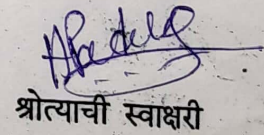 श्रोत्याची स्वाक्षरी